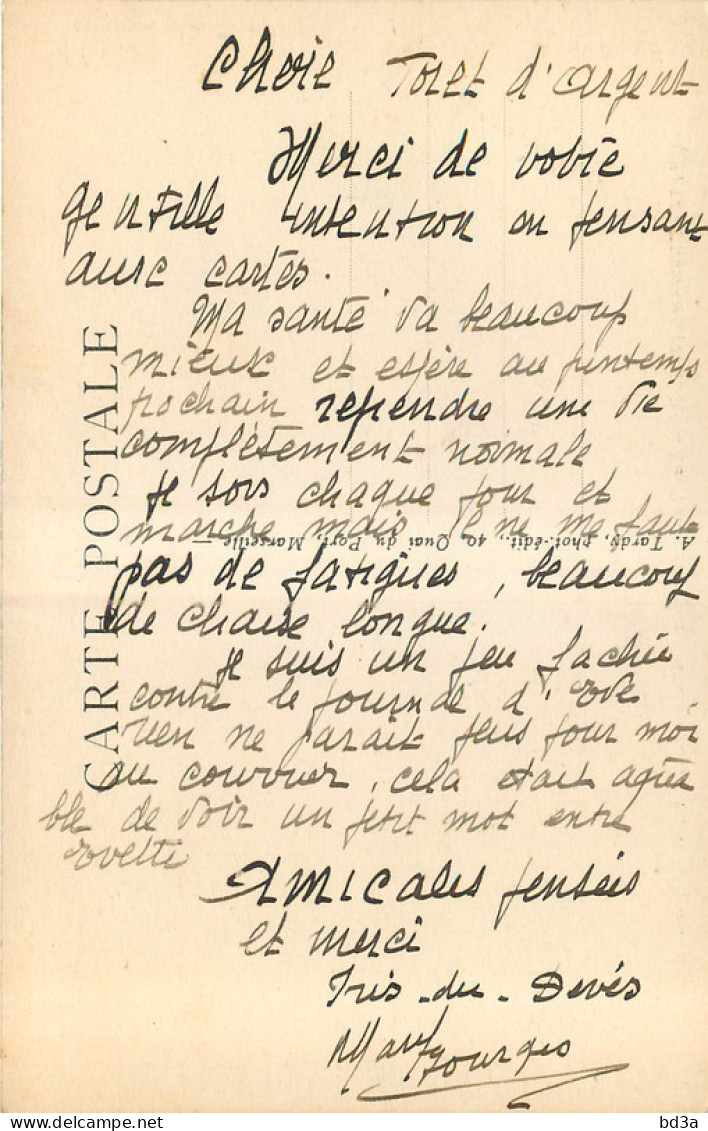 Cherie Foret d'argent
Merci de votre
gentille intention en pensant
aux cartes.
Ma santé va beaucoup
mieux et espère au printemps
prochain reprendre une vie
complètement normale
je sors chaque jour et
marche mais il ne me faut
pas de fatigues, beaucoup
de chaise longue.
je suis un peu fachée
contre le journal d'Eve
rien ne parait plus pour moi
au courrier, cela était agréa
ble de voir un petit mot entre
Evette
Amicales pensées
et merci
Iris-du-Devès
Bourges
CARTE POSTALE
A. Tardy, phot.-édit., 40, Quai du Port, Marseille —
bd3a